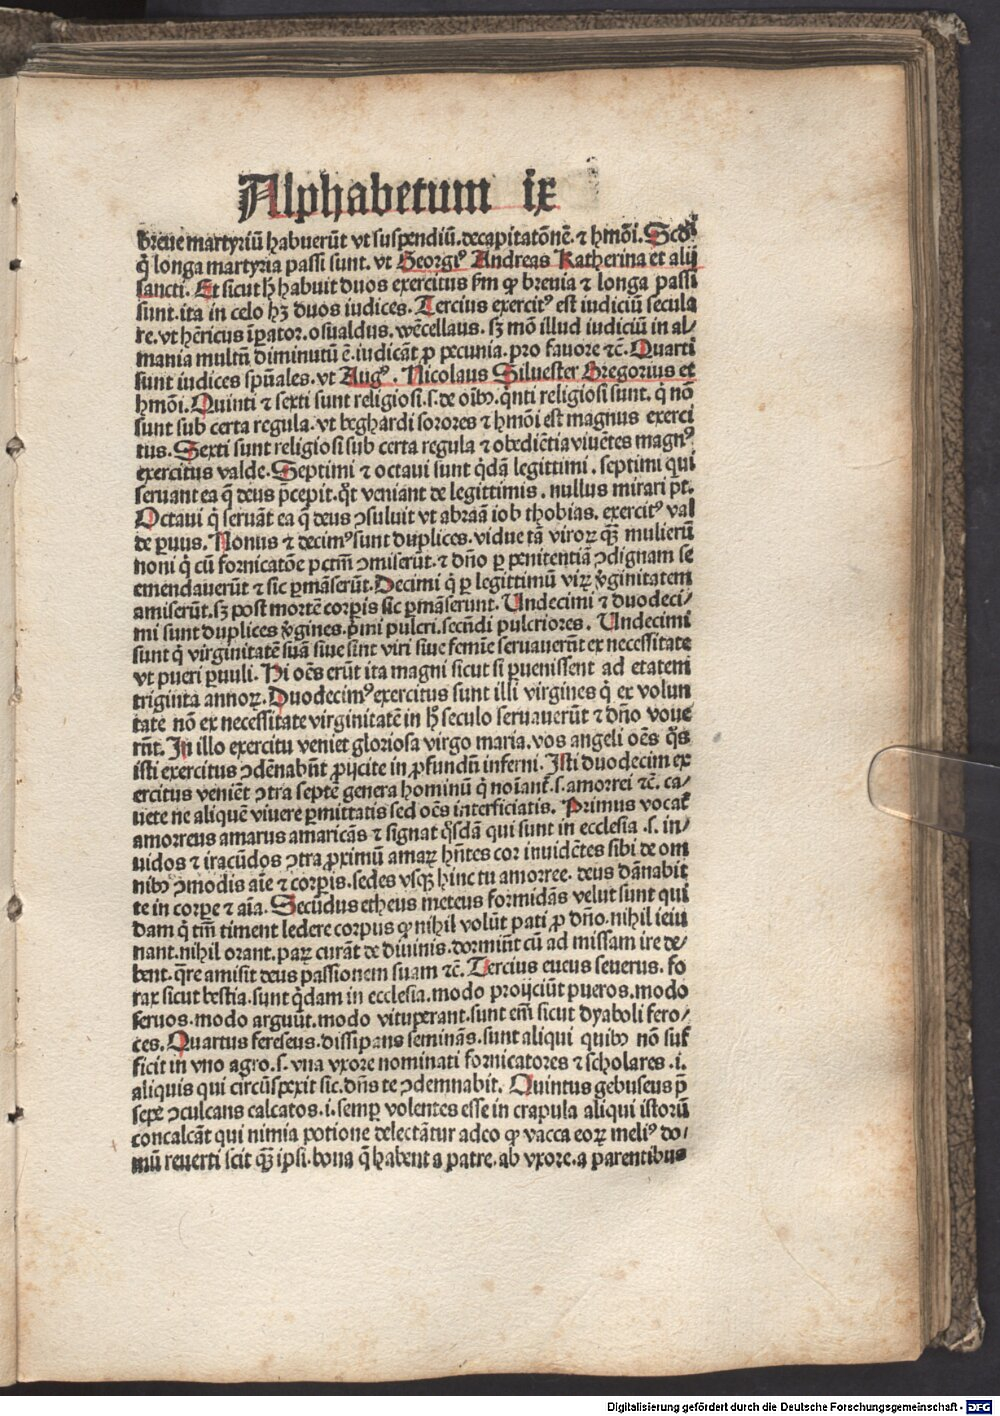 Alphabetum ix
breue martyriū habuerūt vt suspendiū. decapitatōnē. ⁊ hmōi. Scdi
q̇ longa martyria passi sunt. vt Georgiꝰ Andreas Katherina et alij
sancti. Et sicut hʼ habuit duos exercitus fm ꝙ breuia ⁊ longa passi
sunt. ita in celo hꝫ duos iudices. Tercius exercitꝰ est iudiciū secula
re. vt hēricus īpator. osualdus. wēcellaus. sꝫ mō illud iudiciū in al⸗
mania multū diminutū ē. iudicāt ꝓ pecunia. pro fauore ⁊cē. Quarti
sunt iudices spūales. vt Augꝰ. Nicolaus Siluester Gregorius et
hmōi. Quinti ⁊ sexti sunt religiosi. s. de oībꝰ. qnti religiosi sunt. q̇ nō
sunt sub certa regula. vt beghardi sorores ⁊ hmōi est magnus exerci
tus. Sexti sunt religiosi sub certa regula ⁊ obediētia viuētes magnꝰ
exercitus valde. Septimi ⁊ octaui sunt q̇dā legittimi. septimi qui
seruant ea q̄ deus p̄cepit. qt̓ veniant de legittimis. nullus mirari pt̄.
Octaui q̇ seruāt ea q̄ deus ꝯsuluit vt abraā iob thobias. exercitꝰ val
de ꝑuus. Nonus ⁊ decimꝰ sunt duplices. vidue tā viroꝝ qꝫ̄ mulierū
noni q̇ cū fornicatōe pctm̄ ꝯmiserūt. ⁊ dño ꝑ penitentiā ꝯdignam se
emendauerūt ⁊ sic ꝑmāserūt. Decimi q̇ ꝑ legittimū viꝝ v̓ginitatem
amiserūt. sꝫ post mortē corꝑis sic ꝑmāserunt. Undecimi ⁊ duodeci⸗
mi sunt duplices v̓gines. pͥmi pulcri. secūdi pulcriores. Undecimi
sunt q̇ virginitatē suā siue sint viri siue femīe seruauerūt ex necessitate
vt pueri ꝑuuli. Hi oēs erūt ita magni sicut si ꝑuenissent ad etatem
triginta annoꝝ. Duodecimꝰ exercitus sunt illi virgines q̇ ex volun
tate nō ex necessitate virginitatē in hʼ seculo seruauerūt ⁊ dño voue
rūt. In illo exercitu veniet gloriosa virgo maria. vos angeli oēs qs̓
isti exercitus ꝯdēnabūt ꝓijcite in ꝓfundū inferni. Isti duodecim ex
ercitus veniēt ꝯtra septē genera hominū q̇ noīant̄. s. amorrei ⁊cē. ca⸗
uete ne aliquē viuere ꝑmittatis sed oēs interficiatis. Primus vocat̄
amorreus amarus amaricās ⁊ signat qs̓dā qui sunt in ecclesia. s. in⸗
uidos ⁊ iracūdos ꝯtra ꝓximū amaꝝ hn̄tes cor inuidētes sibi de om
nibꝰ ꝯmodis aīe ⁊ corꝑis. sedes vsqꝫ hinc tu amorree. deus dānabit
te in corꝑe ⁊ aīa. Secūdus etheus meteus formidās velut sunt qui
dam q̇ tm̄ timent ledere corpus ꝙ nihil volūt pati ꝓ dño. nihil ieiu
nant. nihil orant. paꝝ curāt de diuinis. dormiūt cū ad missam ire de⸗
bent. qre amisit deus passionem suam ⁊cē. Tercius eueus seuerus. fe
rax sicut bestia. sunt q̇dam in ecclesia. modo proijciūt pueros. modo
seruos. modo arguūt. modo vituperant. sunt em̄ sicut dyaboli fero⸗
ces. Quartus fereseus. dissipans seminās. sunt aliqui quibꝰ nō suf
ficit in vno agro. s. vna vxore nominati fornicatores ⁊ scholares. i.
aliquis qui circūspexit sic. dñs te ꝯdemnabit. Quintus gebuseus p̄
sepe ꝯculcans calcatos. i. semꝑ volentes esse in crapula aliqui istorū
concalcāt qui nimia potione delectātur adeo ꝙ vacca eoꝝ meliꝰ do⸗
mū reuerti scit qꝫ̄ ipsi. bona q̄ habent a patre. ab vxore. a parentibus
Digitalisierung gefördert durch die Deutsche Forschungsgemeinschaft - DFG